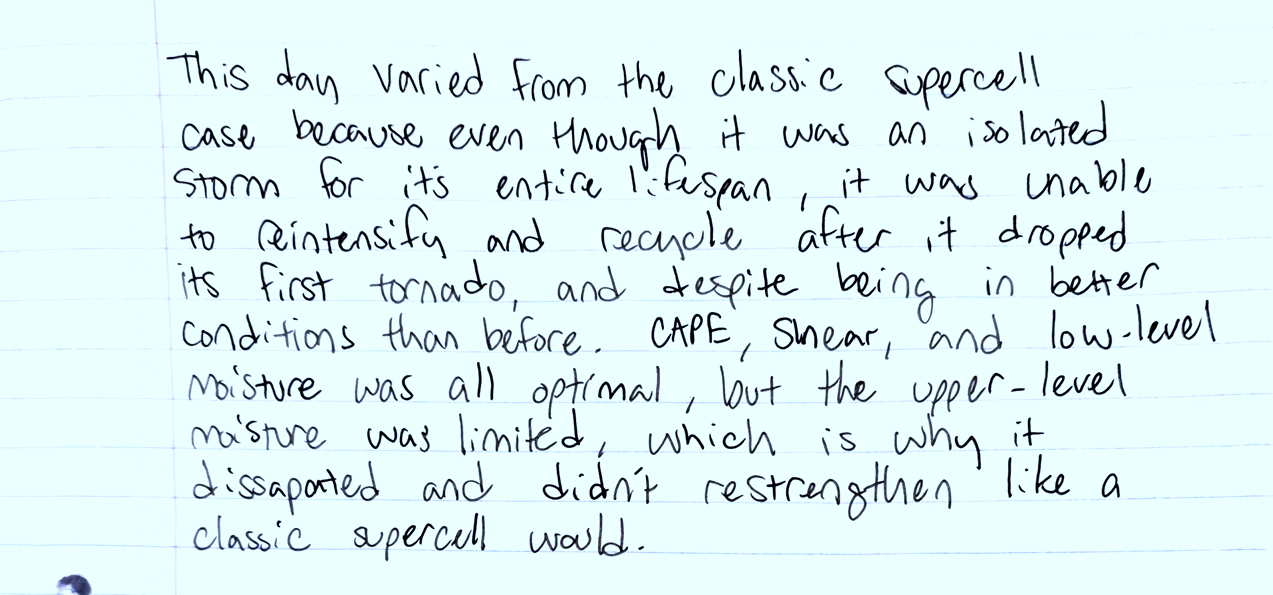 This day varied from the classic supercell
case because even though it was an isolated
storm for it's entire lifespan, it was unable
to reintensify and recycle after it dropped
its first tornado, and despite being in better
conditions than before. CAPE, Shear, and low-level
moisture was all optimal, but the upper-level
moisture was limited, which is why it
dissapated and didn't restrengthen like a
classic supercell would.